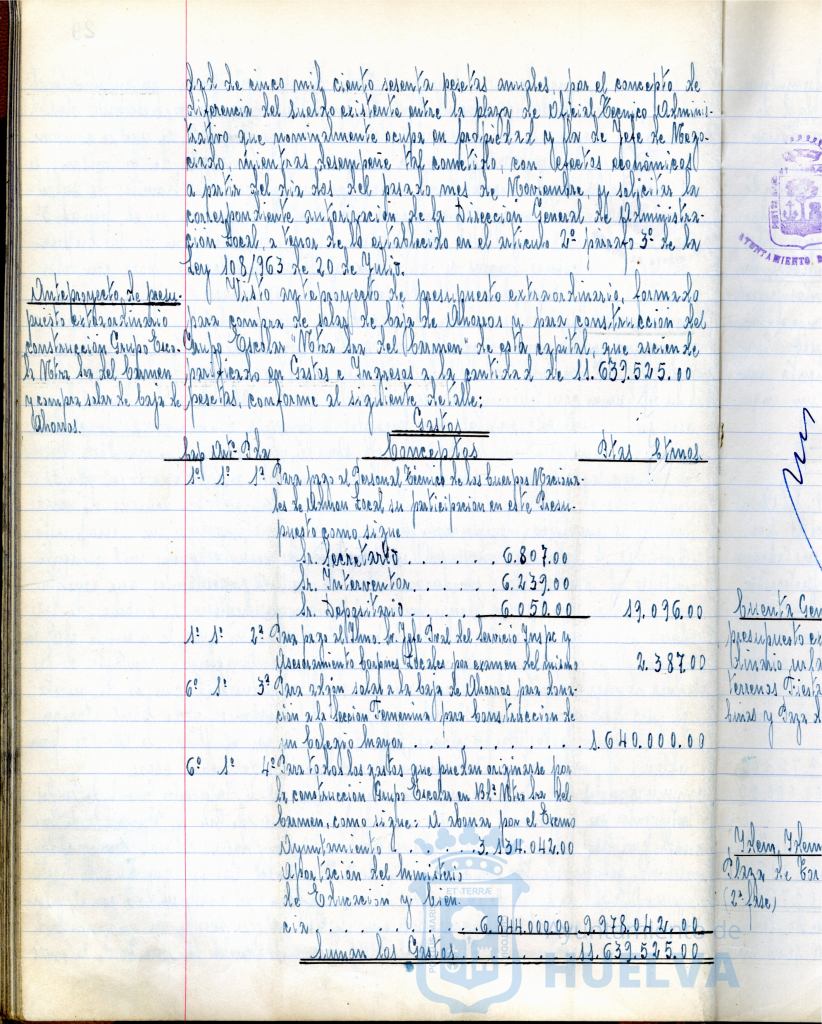 dad de cinco mil ciento sesenta pesetas anuales, por el concepto de
diferencia del sueldo existente entre la plaza de Oficial Técnico Adminis-
trativo que nominalmente ocupa en propiedad y la de Jefe de Nego-
ciado, mientras desempeñe tal cometido, con efectos económicos
a partir del dia dos del pasado mes de Noviembre, y solicitar la
correspondiente autorización de la Dirección General de Administra-
ción Local, a tenor de lo establecido en el artículo 2º parrafo 3º de la
Ley 108/963 de 20 de Julio.
Anteproyecto de presu-
puesto extraordinario
construcción Grupo Esco-
lar Ntra Sra del Carmen
y compra solar de baja de
Ahorros.
Visto anteproyecto de presupuesto extraordinario, formado
para compra de solar de baja de Ahorros y para construcción del
Grupo Escolar "Ntra Sra del Carmen" de esta capital, que asciende
nivelado en Gastos e Ingresos a la cantidad de 11.639.525.00
pesetas, conforme al siguiente detalle:
Gastos
Cap Artº Pda Conceptos Ptas Ctmos.
1º 1º 1ª Para pago al Personal Técnico de los Cuerpos Naciona-
les de Admon Local su participación en este Presu-
puesto como sigue
Sr. Secretario . . . . . . . 6.807.00
Sr. Interventor . . . . . . 6.239.00
Sr. Depositario . . . . . . 6.050.00 19.096.00
1º 1º 2ª Para pago al Ilmo. Sr. Jefe Pral del Servicio Inspc y
Asesoramiento Corpnes Locales por examen del mismo 2.387.00
6º 1º 3ª Para adqon solar a la baja de Ahorros para dona-
ción a la Sección Femenina para Construcción de
un Colegio Mayor . . . . . . . . . . . . 1.640.000.00
6º 1º 4ª Para todos los gastos que puedan originarse por
la construcción Grupo Escolar en Bª Ntra Sra del
Carmen, como sigue: A abonar por el Excmo
Ayuntamiento . . . . . . 3.134.042.00
Aportación del Ministerio
de Educación y Cien-
cia . . . . . . . . . 6.844.000.00 9.978.042.00
Suman los Gastos . . . . . . . . 11.639.525.00
Cuenta Gen
presupuesto ex
dinario
terrenos Fiesta
Plaza de
(2ª fase)
AYUNTAMIENTO, D
Ayuntamiento de
HUELVA